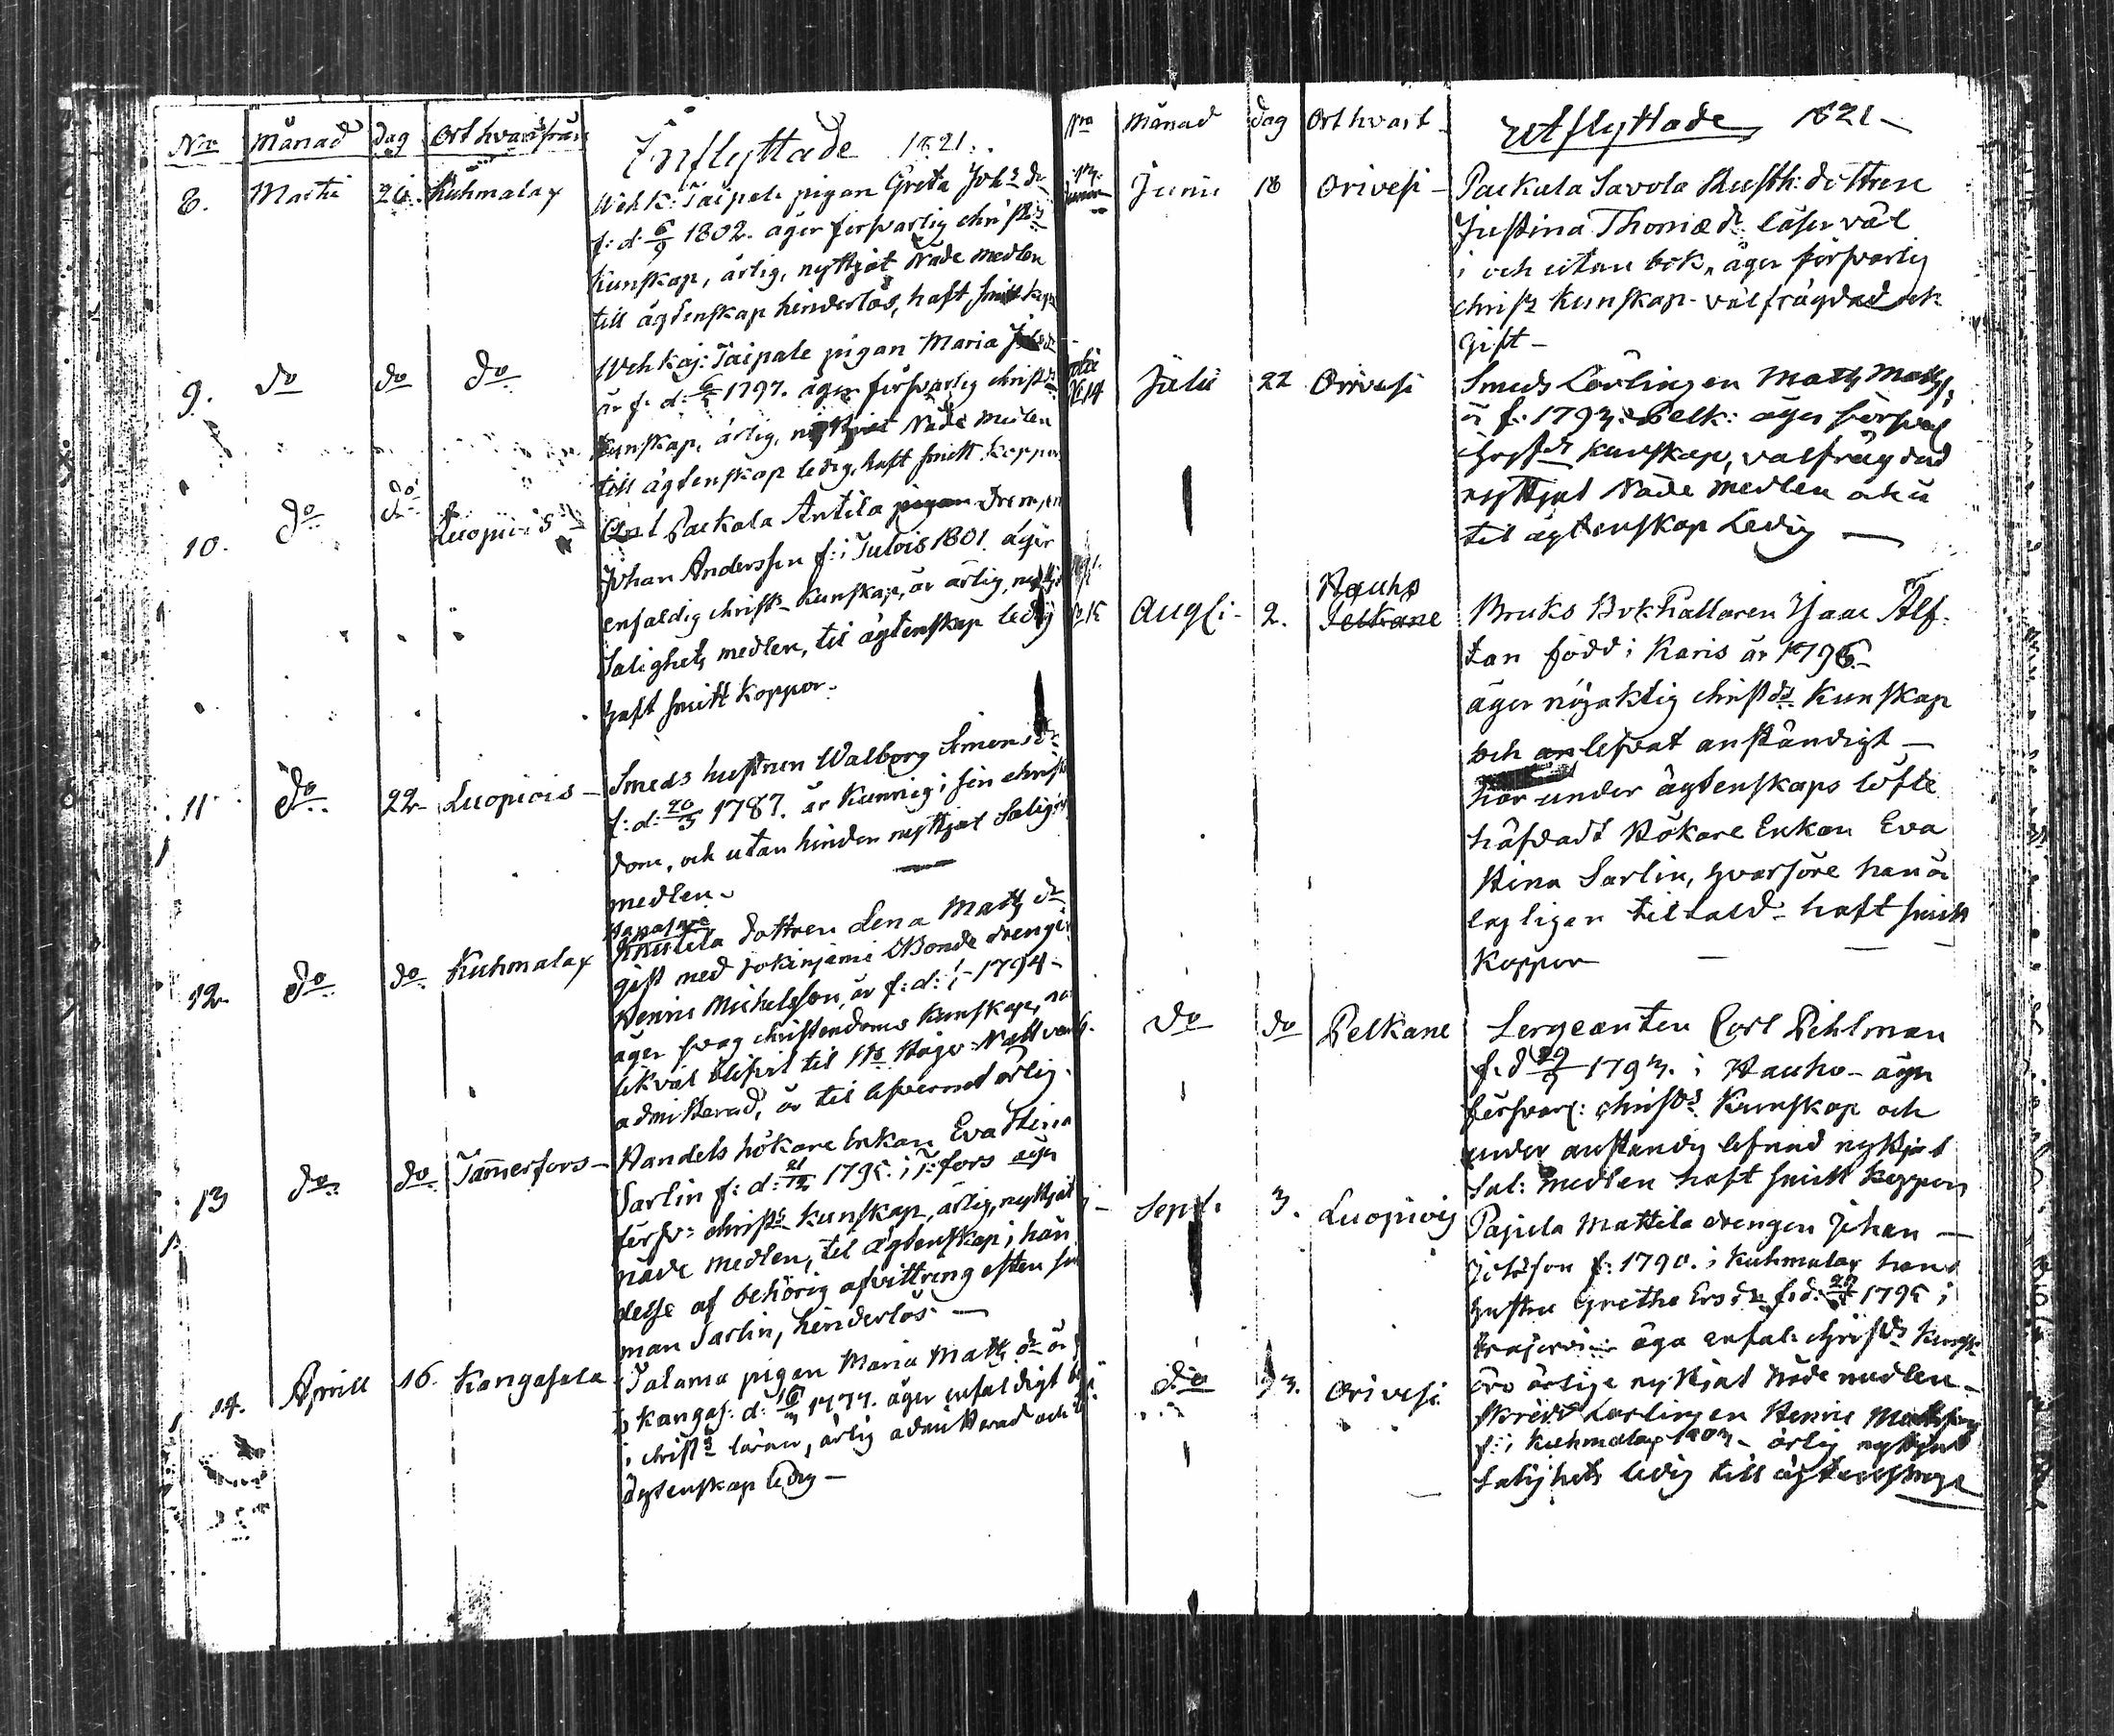 Nro Månad dag Ort hvarifrån Inflyttade 1821.
8. Martii 26. Kuhmalax Wehk: Taipale pigan Greta Joh:s dr
f: d: 6/9 1802. äger försvarlig christ:ds
Kunskap, ärlig, nyttjat Nåde medlen
till ägtenskap hinderlös, haft smitt kopp
9. do do do Wehkaj: Taipale pigan Maria
är f. d: 1797. äger försvarlig christ:ds
Kunskap, ärlig, nyttjat Nåde medlen
till ägtenskap ledig, haft smitt koppor
10. do do Luopiois Packala Antila pigan drengen
Johan Andersson f: i Tulois 1801. äger
enfaldig christ: Kunskap, är ärlig,
Salighets medlen, til ägtenskap ledig
haft smitt koppor.
11. do 22 Luopiois Smeds hustrun Walborg Simons dr
f: d: 20/5 1787. är kunnig i sin christ
dom, och utan hinder nyttjat Salig:
medlen.
12. do do Kuhmalax Knutila dottren Lena Matts dr
gift med Jokinjemi Bonde drengen
Henric Michelsson, är f: d: 1794
äger svag christendoms kunskap,
likväl blifvit til Hr:s Högv: Nattvard
admitterad, är til lefvernet ärlig.
13 do do Tammerfors Handels hökare Enkan Eva Stina
Sarlin f: d: 21/12 1795. i T:fors äger
försv: christ:s kunskap, ärlig, nyttjat
nåde medlen, til ägtenskap i hän
delse af behörig afvittring efter sin
man Sarlin, hinderlös.
14. Aprill 16. Kangasala Talama pigan Maria Matts dr är
i Kangas: d: 1777. äger enfaldigt
i christ:s läran, ärlig admitterad och
ägtenskap ledig
Nro Månad dag Ort hvart Utflyttade 1821
Junii 18 Orivesi Packala Savola Rusth: dottren
Justina Thomæ dr läser väl
i och utan bok, äger försvarlig
christ: Kunskap välfrägdad och
Gift
№ 14 Julii 22 Orivesi Smeds Lärlingen Matts Matts:
är f: 1793. i Pelk: äger försvarl
christ:ds kunskap, välfrägdad
nyttjat Nåde medlen och är
til ägtenskap Ledig
Hauho
№ 15 Augsti 2. Pelkäne Bruks Bokhållaren Isaac Alf-
tan född i Karis år 1796
äger nöjaktig christ:ds Kunskap
och lefvat anständigt
har under ägtenskaps löfte
häfdadt Hökare Enkan Eva
Stina Sarlin, hvarföre han är
lagligen tiltald haft smitt
Koppor
do do Pelkane Sergeanten Carl Pihlman
f. d 29/9 1793. i Hauho äger
försvarl: christ:ds Kunskap och
under anständig lefnad nyttjat
Sal: medlen haft smitt koppor
Sept. 3. Luopiois Pajula Mattila drengen Johan
Johsson f: 1790. i Kuhmalax hans
hustru Gretha Ersdr f. d: 1795 i
äga enfal: christ:ds kunsk:
äro ärlige nyttjat Nåde medlen
do Orivesi Skrädd: Lärlingen Henric
f: i Kuhmalax 1803 ärlig nyttjat
Salighets ledig till ägtenskap